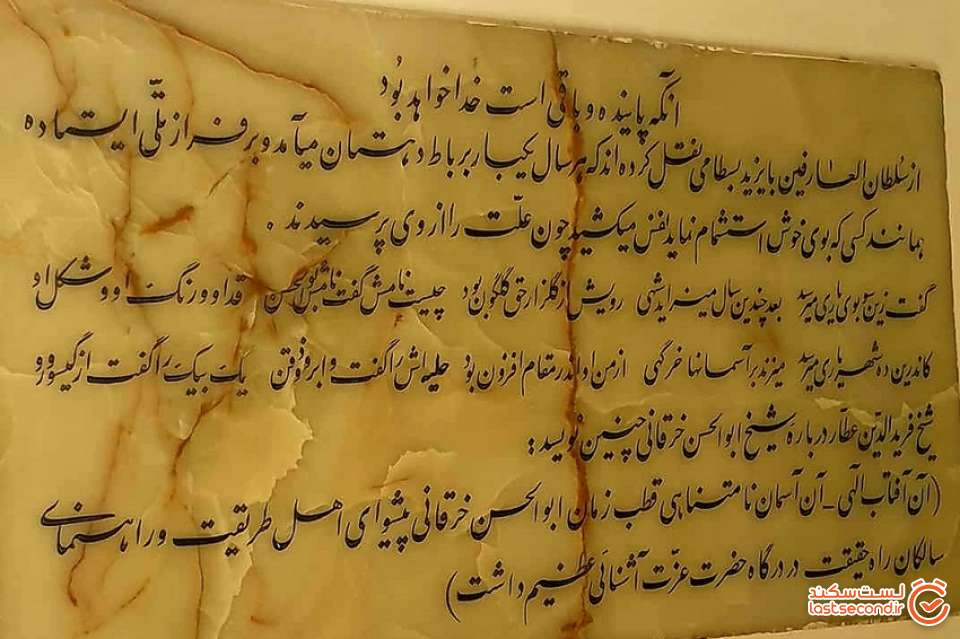 آنکه پاینده و باقی است خدا خواهد بُود
از سُلطان العارفین بایزید بسطامی نقل کرده اند که هر سال یکبار بر باط دهستان میآمد و بر فراز تلّی ایستاده
همانند کسی که بوی خوش استشمام نماید نفس میکشید چون علّت را از وی پرسیدند .
گفت زین سو بوی یاری میرسد بعد چندین سال میزاید شهی رویش از گلزار حق گلگون بود چیست نامش گفت نامش بوالحسن قد او و رنگ او و شکل او
کاندرین ده شهریاری میرسد میزند بر آسمانها خرگهی از من او اندر مقام افزون بود حلیه اش را گفت و ابرو و ذقن یک بیک را گفت از گیسو و رو
شیخ فرید الدّین عطار درباره شیخ ابوالحسن خرقانی چنین نویسد :
(آن آفتاب الهی - آن آسمان نامتناهی قطب زمان ابوالحسن خرقانی پیشوای اهل طریقت و راهنمای
سالکان راه حقیقت در درگاه حضرت عزّت آشنائی عظیم داشت)
لست سکند
lastsecond.ir